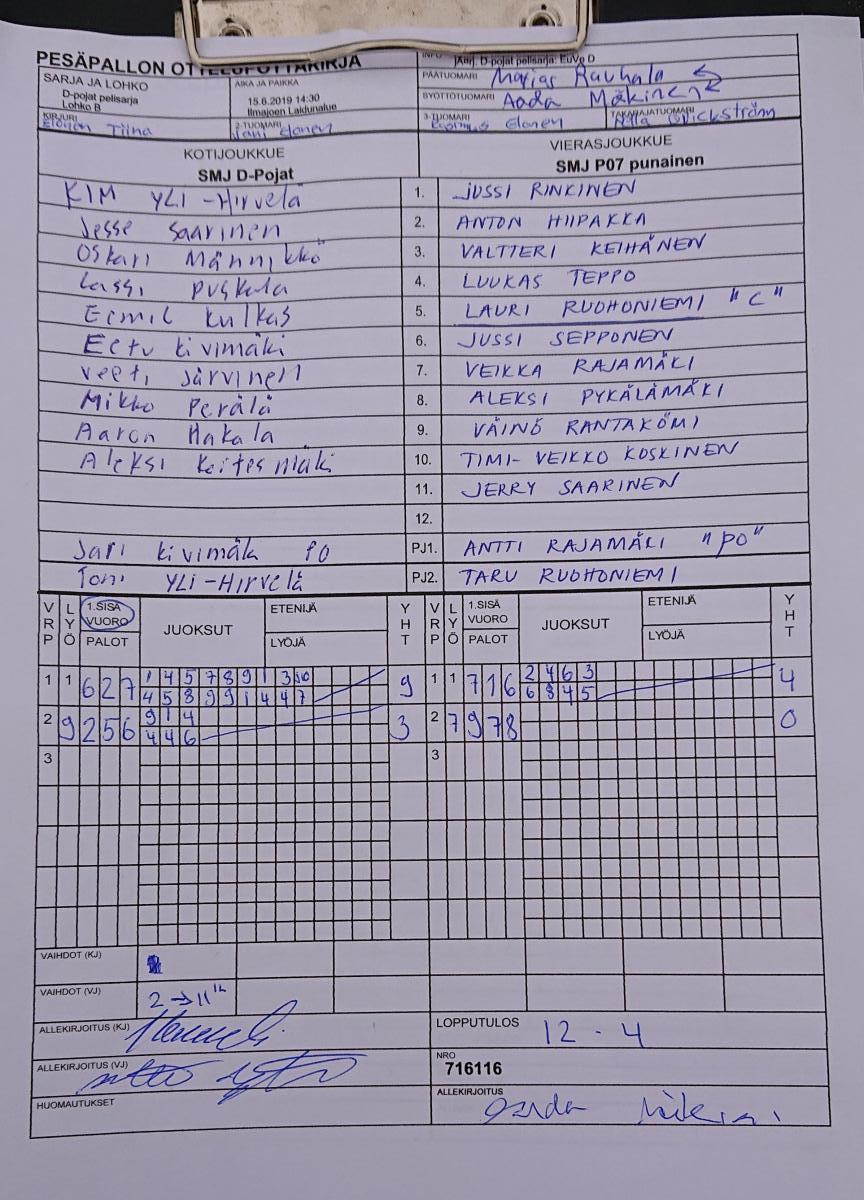 PESÄPALLON OTTELUPÖYTÄKIRJA
SARJA JA LOHKO
D-pojat pelisarja
Lohko B
AIKA JA PAIKKA
15.6.2019 14:30
Ilmajoen Laidunalue
INFO
D-pojat pelisarja: EuVe D
PÄÄTUOMARI Marjas Rauhala
SYÖTTÖTUOMARI Aada Mäkinen
KIRJURI
Elonen Tiina
2-TUOMARI
Elonen
3-TUOMARI
Elonen
TAKARAJATUOMARI
KOTIJOUKKUE
SMJ D-Pojat
VIERASJOUKKUE
SMJ P07 punainen
KIM YLI-Hirvelä 1. JUSSI RINKINEN
Jesse Saarinen 2. ANTON HIIPAKKA
Oskari Männikkö 3. VALTTERI KEIHÄNEN
Lassi Puskala 4. LUUKAS TEPPO
Eemil Kulkas 5. LAURI RUOHONIEMI "C"
Eetu Kivimäki 6. JUSSI SEPPONEN
Veeti Järvinen 7. VEIKKA RAJAMÄKI
Mikko Perälä 8. ALEKSI PYKÄLÄMÄKI
Aaron Hakala 9. VÄINÖ RANTAKÖMI
Aleksi 10. TIMI-VEIKKO KOSKINEN
11. JERRY SAARINEN
12.
Jari Kivimäk PO PJ1. ANTTI RAJAMÄKI "PO"
Toni YLI-Hirvelä PJ2. TARU RUOHONIEMI
VRP LYÖ 1.SISÄ VUORO PALOT JUOKSUT ETENIJÄ LYÖJÄ YHT VRP LYÖ 1.SISÄ VUORO PALOT JUOKSUT ETENIJÄ LYÖJÄ YHT
1 1 6 2 7 1 4 5 7 8 9 1 3 10 9 1 1 7 1 6 2 4 6 3 4
4 5 8 9 9 1 4 4 7 6 8 4 5
2 9 2 5 6 9 1 4 3 2 7 9 7 8 0
4 4 6
3 3
VAIHDOT (KJ)
VAIHDOT (VJ) 2 → 11
ALLEKIRJOITUS (KJ)
LOPPUTULOS 12 - 4
ALLEKIRJOITUS (VJ)
NRO
716116
HUOMAUTUKSET
ALLEKIRJOITUS